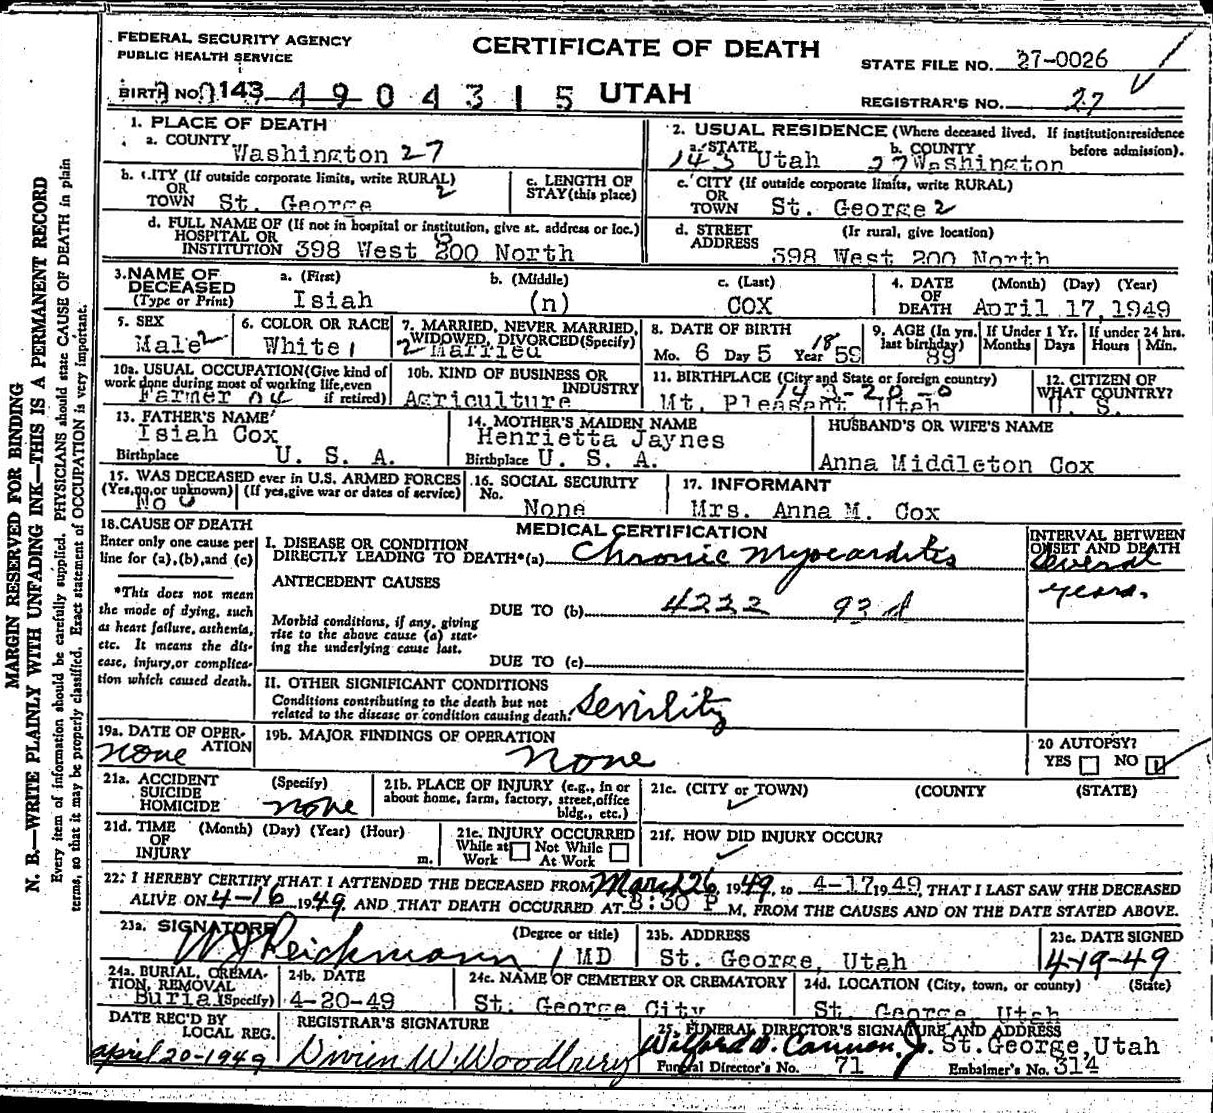 FEDERAL SECURITY AGENCY
PUBLIC HEALTH SERVICE
CERTIFICATE OF DEATH
STATE FILE NO. 27-0026
BIRTH NO. 143 4904315 UTAH
REGISTRAR'S NO. 27
1. PLACE OF DEATH
a. COUNTY Washington 27
2. USUAL RESIDENCE (Where deceased lived. If institution: residence before admission).
a. STATE 143 Utah b. COUNTY 27 Washington
b. CITY (If outside corporate limits, write RURAL) 2
OR
TOWN St. George
c. LENGTH OF
STAY (this place)
c. CITY (If outside corporate limits, write RURAL)
OR
TOWN St. George 2
d. FULL NAME OF (If not in hospital or institution, give st. address or loc.)
HOSPITAL OR
INSTITUTION 398 West 200 North
d. STREET (If rural, give location)
ADDRESS 398 West 200 North
3. NAME OF DECEASED
(Type or Print)
a. (First) Isiah
b. (Middle) (n)
c. (Last) COX
4. DATE OF DEATH (Month) (Day) (Year)
April 17, 1949
5. SEX
Male 2
6. COLOR OR RACE
White 1
7. MARRIED, NEVER MARRIED,
WIDOWED, DIVORCED (Specify)
2 Married
8. DATE OF BIRTH
Mo. 6 Day 5 Year 18 59
9. AGE (In yrs. last birthday)
89
If Under 1 Yr.
Months Days
If under 24 hrs.
Hours Min.
10a. USUAL OCCUPATION (Give kind of
work done during most of working life, even
if retired)
Farmer
10b. KIND OF BUSINESS OR
INDUSTRY
Agriculture
11. BIRTHPLACE (City and State or foreign country)
143-20-0
Mt. Pleasant Utah
12. CITIZEN OF
WHAT COUNTRY?
U. S.
13. FATHER'S NAME
Isiah Cox
Birthplace U. S. A.
14. MOTHER'S MAIDEN NAME
Henrietta Jaynes
Birthplace U. S. A.
HUSBAND'S OR WIFE'S NAME
Anna Middleton Cox
15. WAS DECEASED ever in U.S. ARMED FORCES
(Yes, no, or unknown) (If yes, give war or dates of service)
No 0
16. SOCIAL SECURITY
No.
None
17. INFORMANT
Mrs. Anna M. Cox
18. CAUSE OF DEATH
Enter only one cause per
line for (a), (b), and (c)
*This does not mean
the mode of dying, such
as heart failure, asthenia,
etc. It means the dis-
ease, injury, or complica-
tion which caused death.
MEDICAL CERTIFICATION
INTERVAL BETWEEN
ONSET AND DEATH
I. DISEASE OR CONDITION
DIRECTLY LEADING TO DEATH*(a) Chronic Myocarditis
several
years.
ANTECEDENT CAUSES
DUE TO (b) 4222 93d
Morbid conditions, if any, giving
rise to the above cause (a) stat-
ing the underlying cause last.
DUE TO (c)
II. OTHER SIGNIFICANT CONDITIONS
Conditions contributing to the death but not
related to the disease or condition causing death. Senility
19a. DATE OF OPER-
ATION
none
19b. MAJOR FINDINGS OF OPERATION
none
20 AUTOPSY?
YES NO
21a. ACCIDENT (Specify)
SUICIDE
HOMICIDE none
21b. PLACE OF INJURY (e.g., in or
about home, farm, factory, street, office
bldg., etc.)
21c. (CITY or TOWN) (COUNTY) (STATE)
21d. TIME (Month) (Day) (Year) (Hour)
OF
INJURY m.
21e. INJURY OCCURRED
While at Not While
Work At Work
21f. HOW DID INJURY OCCUR?
22. I HEREBY CERTIFY THAT I ATTENDED THE DECEASED FROM March 26, 1949, to 4-17 1949, THAT I LAST SAW THE DECEASED
ALIVE ON 4-16 1949 AND THAT DEATH OCCURRED AT 8:30 P M, FROM THE CAUSES AND ON THE DATE STATED ABOVE.
23a. SIGNATURE (Degree or title)
W J Reichmann MD
23b. ADDRESS
St. George, Utah
23c. DATE SIGNED
4-19-49
24a. BURIAL, CREMA-
TION, REMOVAL
Burial (Specify)
24b. DATE
4-20-49
24c. NAME OF CEMETERY OR CREMATORY
St. George City
24d. LOCATION (City, town, or county) (State)
St. George, Utah
DATE REC'D BY
LOCAL REG.
april 20-1949
REGISTRAR'S SIGNATURE
Vivien W. Woodbury
25. FUNERAL DIRECTOR'S SIGNATURE AND ADDRESS
Wilford D. Cannon, Jr. St. George, Utah
Funeral Director's No. 71 Embalmer's No. 314
MARGIN RESERVED FOR BINDING
N. B.—WRITE PLAINLY WITH UNFADING INK—THIS IS A PERMANENT RECORD
Every item of information should be carefully supplied. PHYSICIANS should state CAUSE OF DEATH in plain
terms, so that it may be properly classified. Exact statement of OCCUPATION is very important.